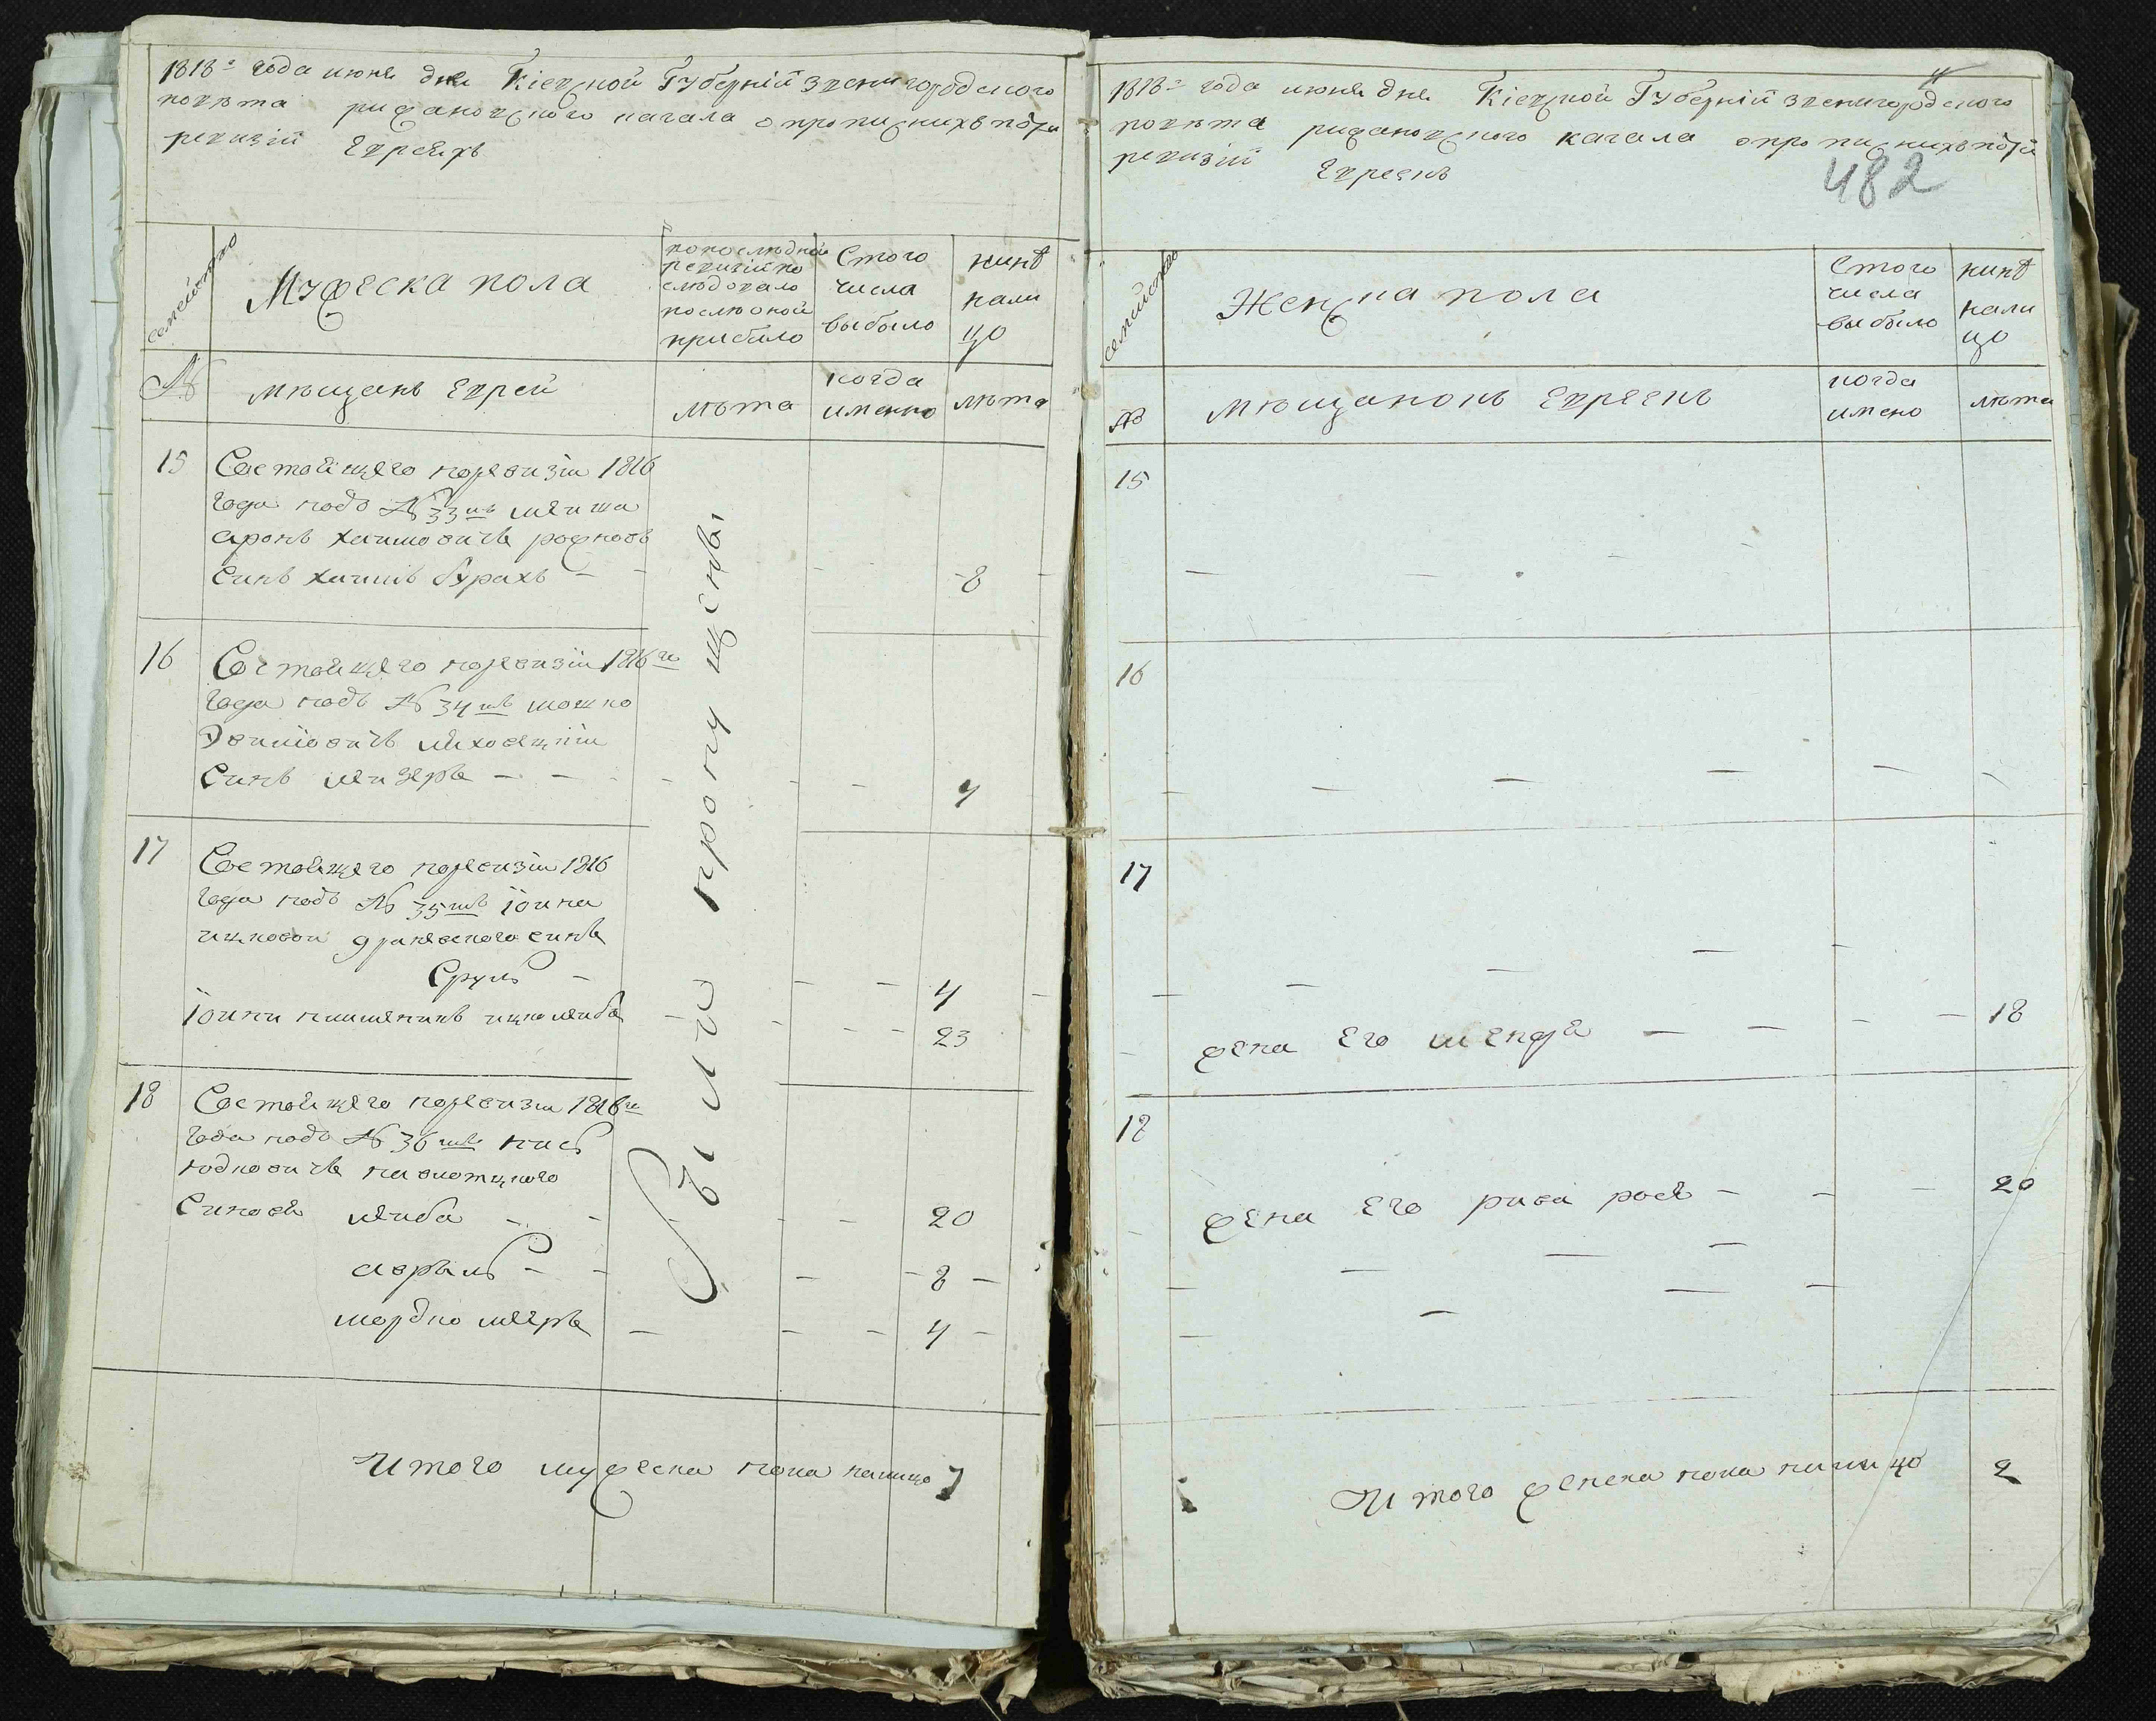 1818го года июня дня Кіевской Губерній Звенигородского
повѣта рижановского кагала о прописнихъ по 7й
ревизій Евреяхъ
семейство
Мужеска пола
по последней
ревизій по
следовало
после оной
прибыло
С того
числа
выбыло
нинѣ
нали
цо
№
мѣщанъ Еврей
лѣта
когда
именно
лѣта
15
Состоящего по ревизіи 1816
года подъ № 33мъ лейжа
аронъ хаимовичъ
синъ хаимъ бурахъ - - - - - 8 -
16
Состоящего по ревизіи 1816го
года подъ № 34мъ мошко
синъ лейзеръ - - - - - 4
17
Состоящего по ревизіи 1816
года подъ № 35мъ іойна
ицковой синъ
Сруль - - - 4 -
Іойни племеникъ ицко лейба - - - - 23
18
Состоящего по ревизіи 1816го
года подъ № 36мъ
Синовя лейба - - - - - 20
аврумъ - - - - 8 -
мордко мееръ - - - 4 -
Были пропущены
Итого мужеска пола налицо 7
4
1818го года июня дня Кіевской Губерній Звенигородского
повѣта рижановского кагала о прописнихъ по 7й
ревизій Евреекъ
482
семейство
Женска пола
С того
числа
выбыло
нинѣ
нали
цо
№
мѣщанокъ Евреекъ
когда
имено
лѣта
15
- - - - -
16
- - - - - - -
17
- - - - -
- жена его шендя - - - - 18
18
- жена его рися - - - 20
- - - -
- - - -
Итого женска пола налицо 2